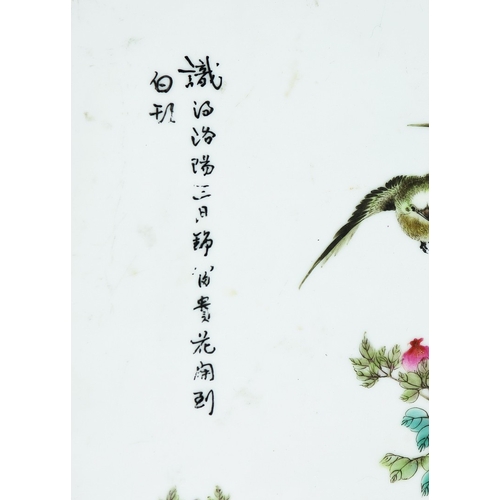 識得洛陽三月錦富貴花開到
白頭